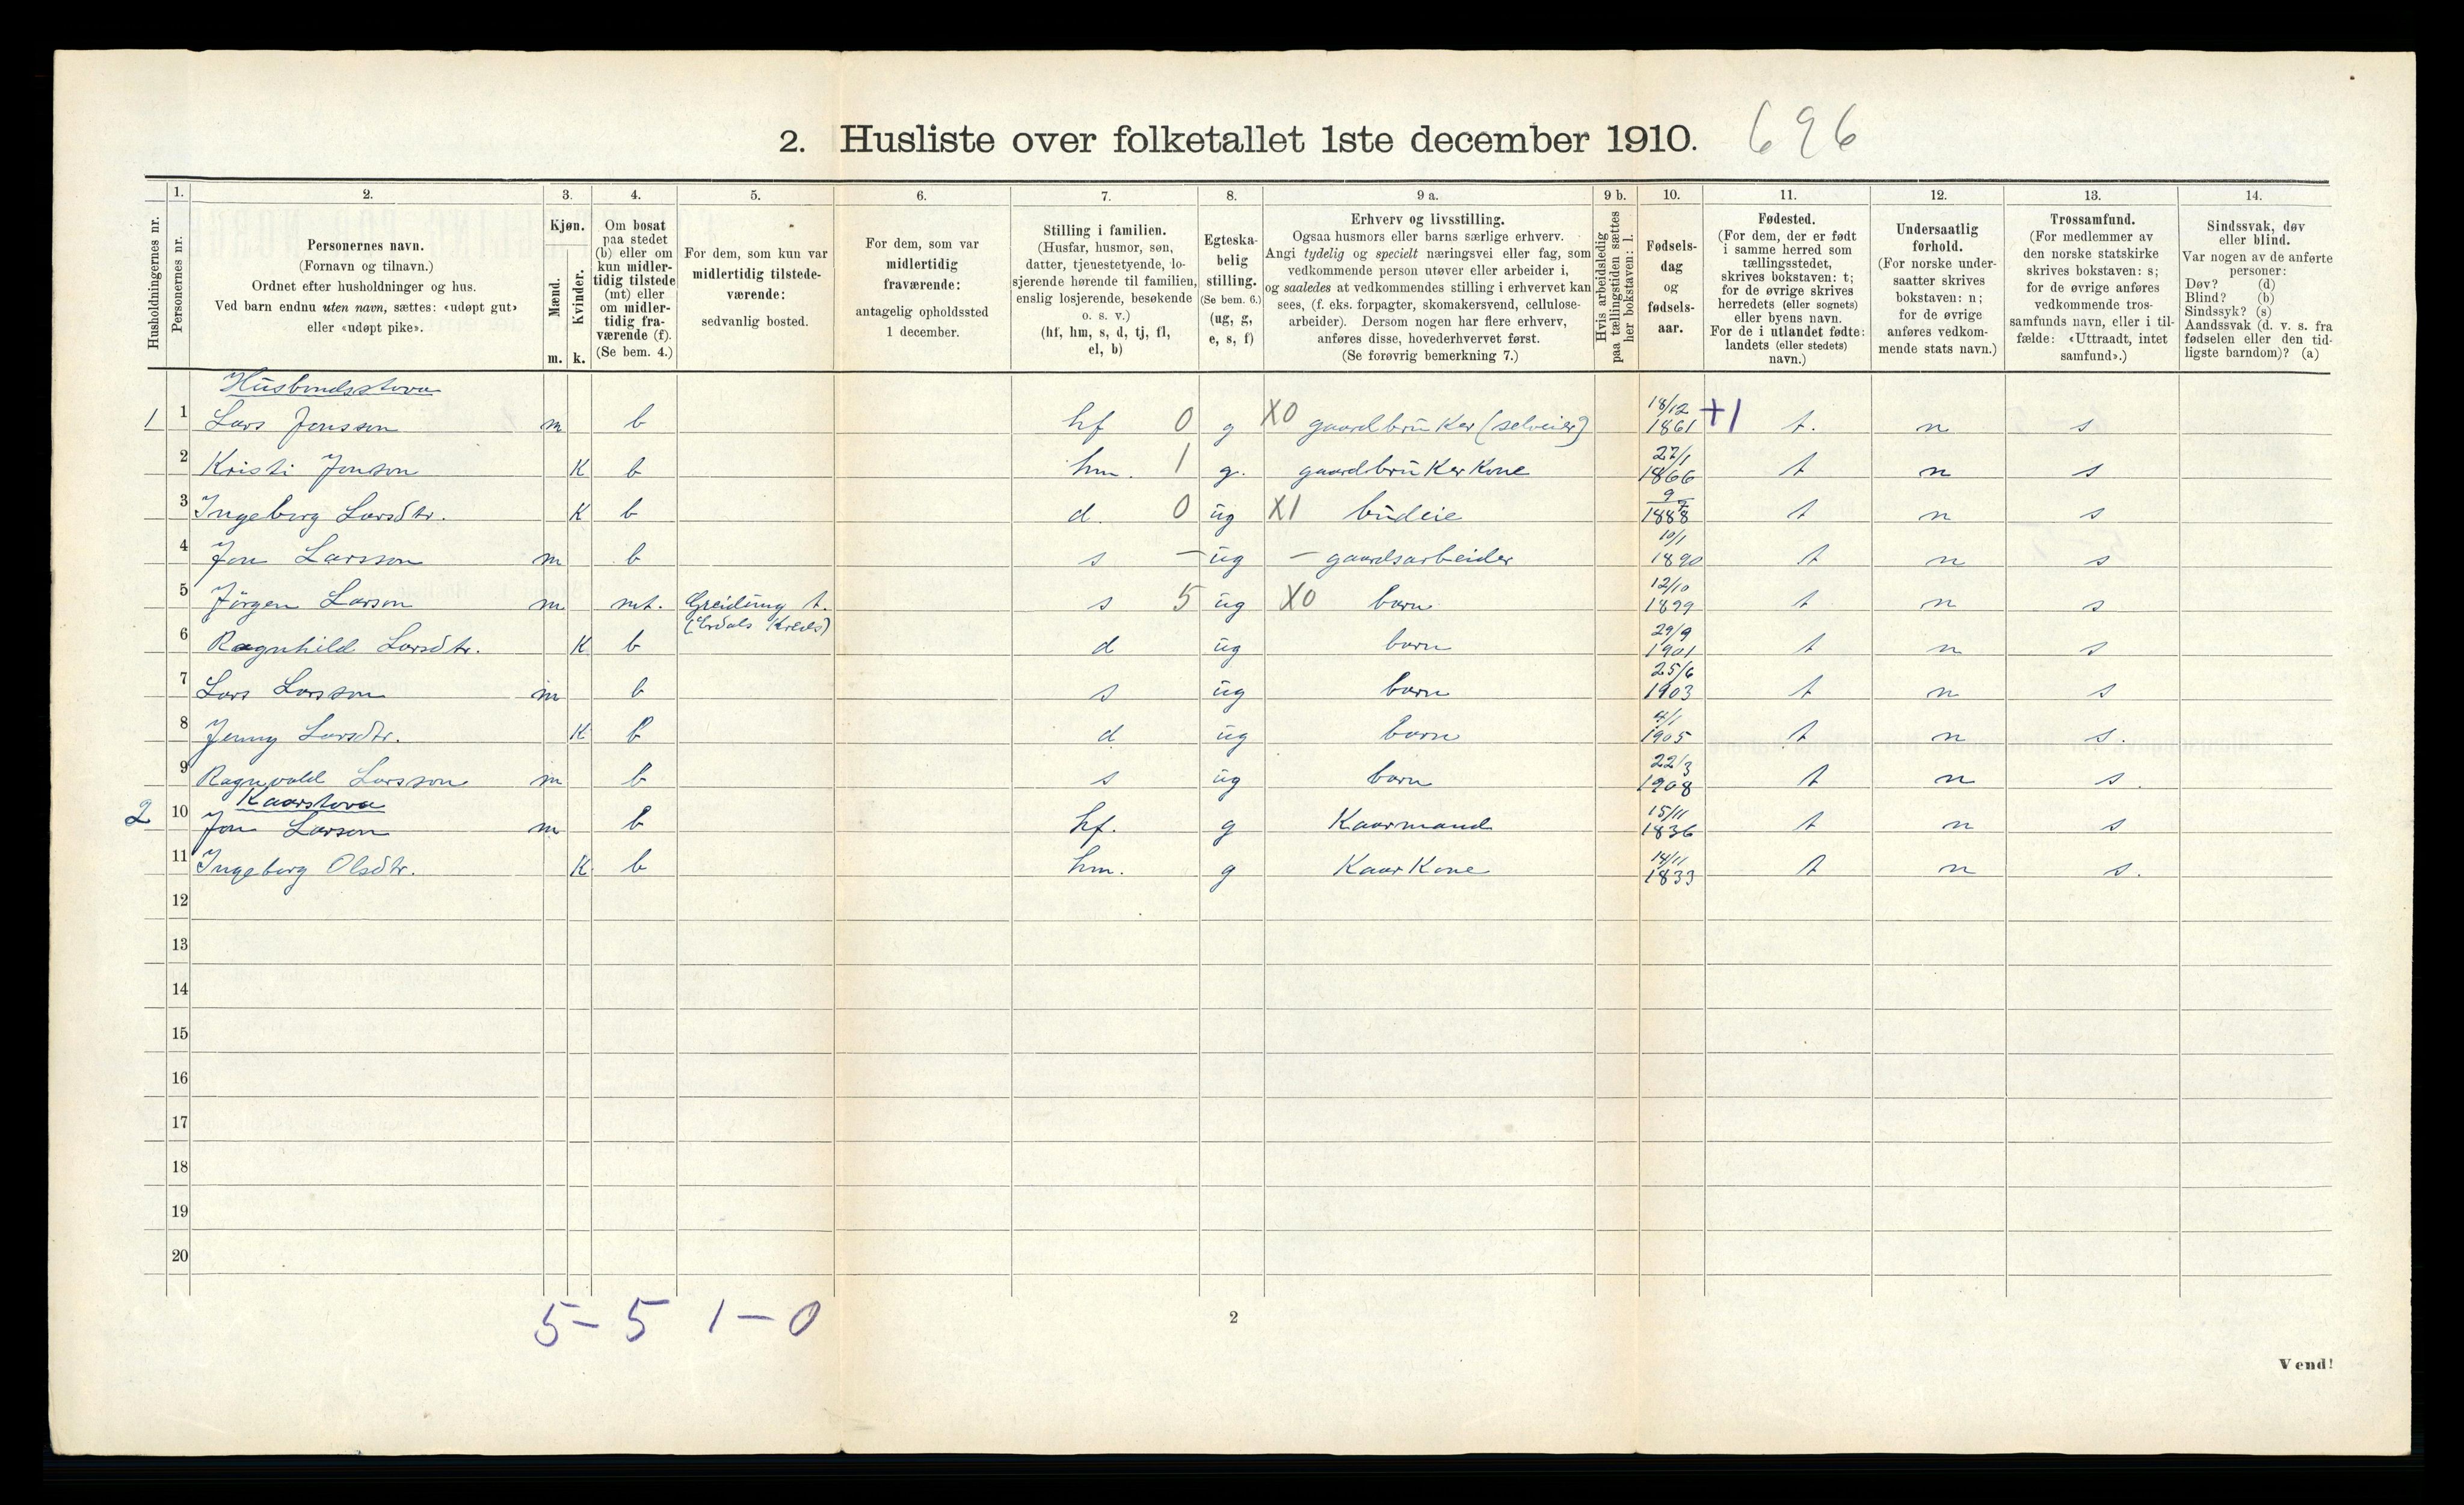 2. Husliste over folketallet 1ste december 1910. 696
Husholdningernes nr.
1. Personernes nr.
2.
Personernes navn.
(Fornavn og tilnavn.)
Ordnet efter husholdninger og hus.
Ved barn endnu uten navn, sættes: «udøpt gut»
eller «udøpt pike».
3.
Kjøn.
Mænd.
m.
Kvinder.
k.
4.
Om bosat
paa stedet
(b) eller om
kun midler-
tidig tilstede
(mt) eller
om midler-
tidig fra-
værende (f).
(Se bem. 4.)
5.
For dem, som kun var
midlertidig tilstede-
værende:
sedvanlig bosted.
6.
For dem, som var
midlertidig
fraværende:
antagelig opholdssted
1 december.
7.
Stilling i familien.
(Husfar, husmor, søn,
datter, tjenestetyende, lo-
sjerende hørende til familien,
enslig losjerende, besøkende
o. s. v.)
(hf, hm, s, d, tj, fl,
el, b)
8.
Egteska-
belig
stilling.
(Se bem. 6.)
(ug, g,
e, s, f)
9 a.
Erhverv og livsstilling.
Ogsaa husmors eller barns særlige erhverv.
Angi tydelig og specielt næringsvei eller fag, som
vedkommende person utøver eller arbeider i,
og saaledes at vedkommendes stilling i erhvervet kan
sees, (f. eks. forpagter, skomakersvend, cellulose-
arbeider). Dersom nogen har flere erhverv,
anføres disse, hovederhvervet først.
(Se forøvrig bemerkning 7.)
9 b.
Hvis arbeidsledig
paa tællingstiden sættes
her bokstaven: l.
10.
Fødsels-
dag
og
fødsels-
aar.
11.
Fødested.
(For dem, der er født
i samme herred som
tællingsstedet,
skrives bokstaven: t;
for de øvrige skrives
herredets (eller sognets)
eller byens navn.
For de i utlandet fødte:
landets (eller stedets)
navn.)
12.
Undersaatlig
forhold.
(For norske under-
saatter skrives
bokstaven: n;
for de øvrige
anføres vedkom-
mende stats navn.)
13.
Trossamfund.
(For medlemmer av
den norske statskirke
skrives bokstaven: s;
for de øvrige anføres
vedkommende tros-
samfunds navn, eller i til-
fælde: «Uttraadt, intet
samfund».)
14.
Sindssvak, døv
eller blind.
Var nogen av de anførte
personer:
Døv? (d)
Blind? (b)
Sindssyk? (s)
Aandssvak (d. v. s. fra
fødselen eller den tid-
ligste barndom)? (a)
Husbondsstova
1 1 Lars Jonsson m b hf 0 g X0 gaardbruker (selveier) 18/12 1861 +1 t. n s
2 Kristi Jonson K b hm. 1 g. gaardbruker Kone 27/1 1866 t n s
3 Ingeborg Larsdtr. K b d. 0 ug X1 budeie 1888 t n s
4 Jon Larsson m b s – ug – gaardsarbeider 10/1 1890 t n s
5 Jörgen Larson m mt. Greidung t. s 5 ug X0 barn 12/10 1899 t n s
(Erdals Kreds)
6 Ragnhild Larsdtr. K b d ug barn 29/9 1901 t n s
7 Lars Larsson m b s ug barn 25/6 1903 t n s
8 Jenny Larsdtr. K b d ug barn 4/1 1905 t n s.
9 Ragnvald Larsson m b s ug barn 22/3 1908 t n s.
Kaarstova
2 10 Jon Larson m b hf. g Kaarmand 15/11 1836 t n s
11 Ingeborg Olsdtr. K. b hm. g Kaar Kone 14/11 1833 t n s.
12
13
14
15
16
17
18
19
20
5 – 5 1 – 0
2
Vend!